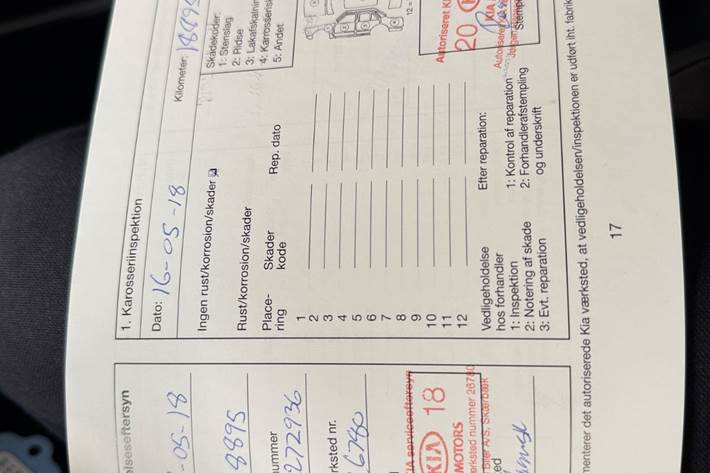 1. Karosseriinspektion
Dato: 16-05-18
Kilometer:
Ingen rust/korrosion/skader
Skadekoder:
1: Stenslag
2: Ridse
3: Lakafskalning
4: Karrosseris
5: Andet
Rust/korrosion/skader
Place-
ring
Skader
kode
Rep. dato
1
2
3
4
5
6
7
8
9
10
11
12
12 =
Autoriseret KI
20
Vedligeholdelse
hos forhandler
1: Inspektion
2: Notering af skade
3: Evt. reparation
Efter reparation:
1: Kontrol af reparation
2: Forhandlerafstempling
og underskrift
Stempel
menterer det autoriserede Kia værksted, at vedligeholdelsen/inspektionen er udført int. fabrik
17
lseseftersyn
-05-18
8895
ummer
272936
rksted nr.
6780
KIA serviceeftersyn
KIA 18
MOTORS
ærksted nummer 26780
Biler A/S, Skærbæk
ed